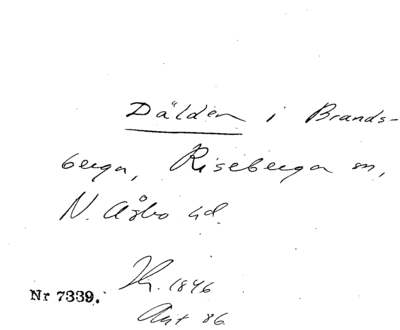 Dälden i Brands-
berga, Riseberga sn,
N. Åsbo hd.
Nr 7339. 1846
Akt 86